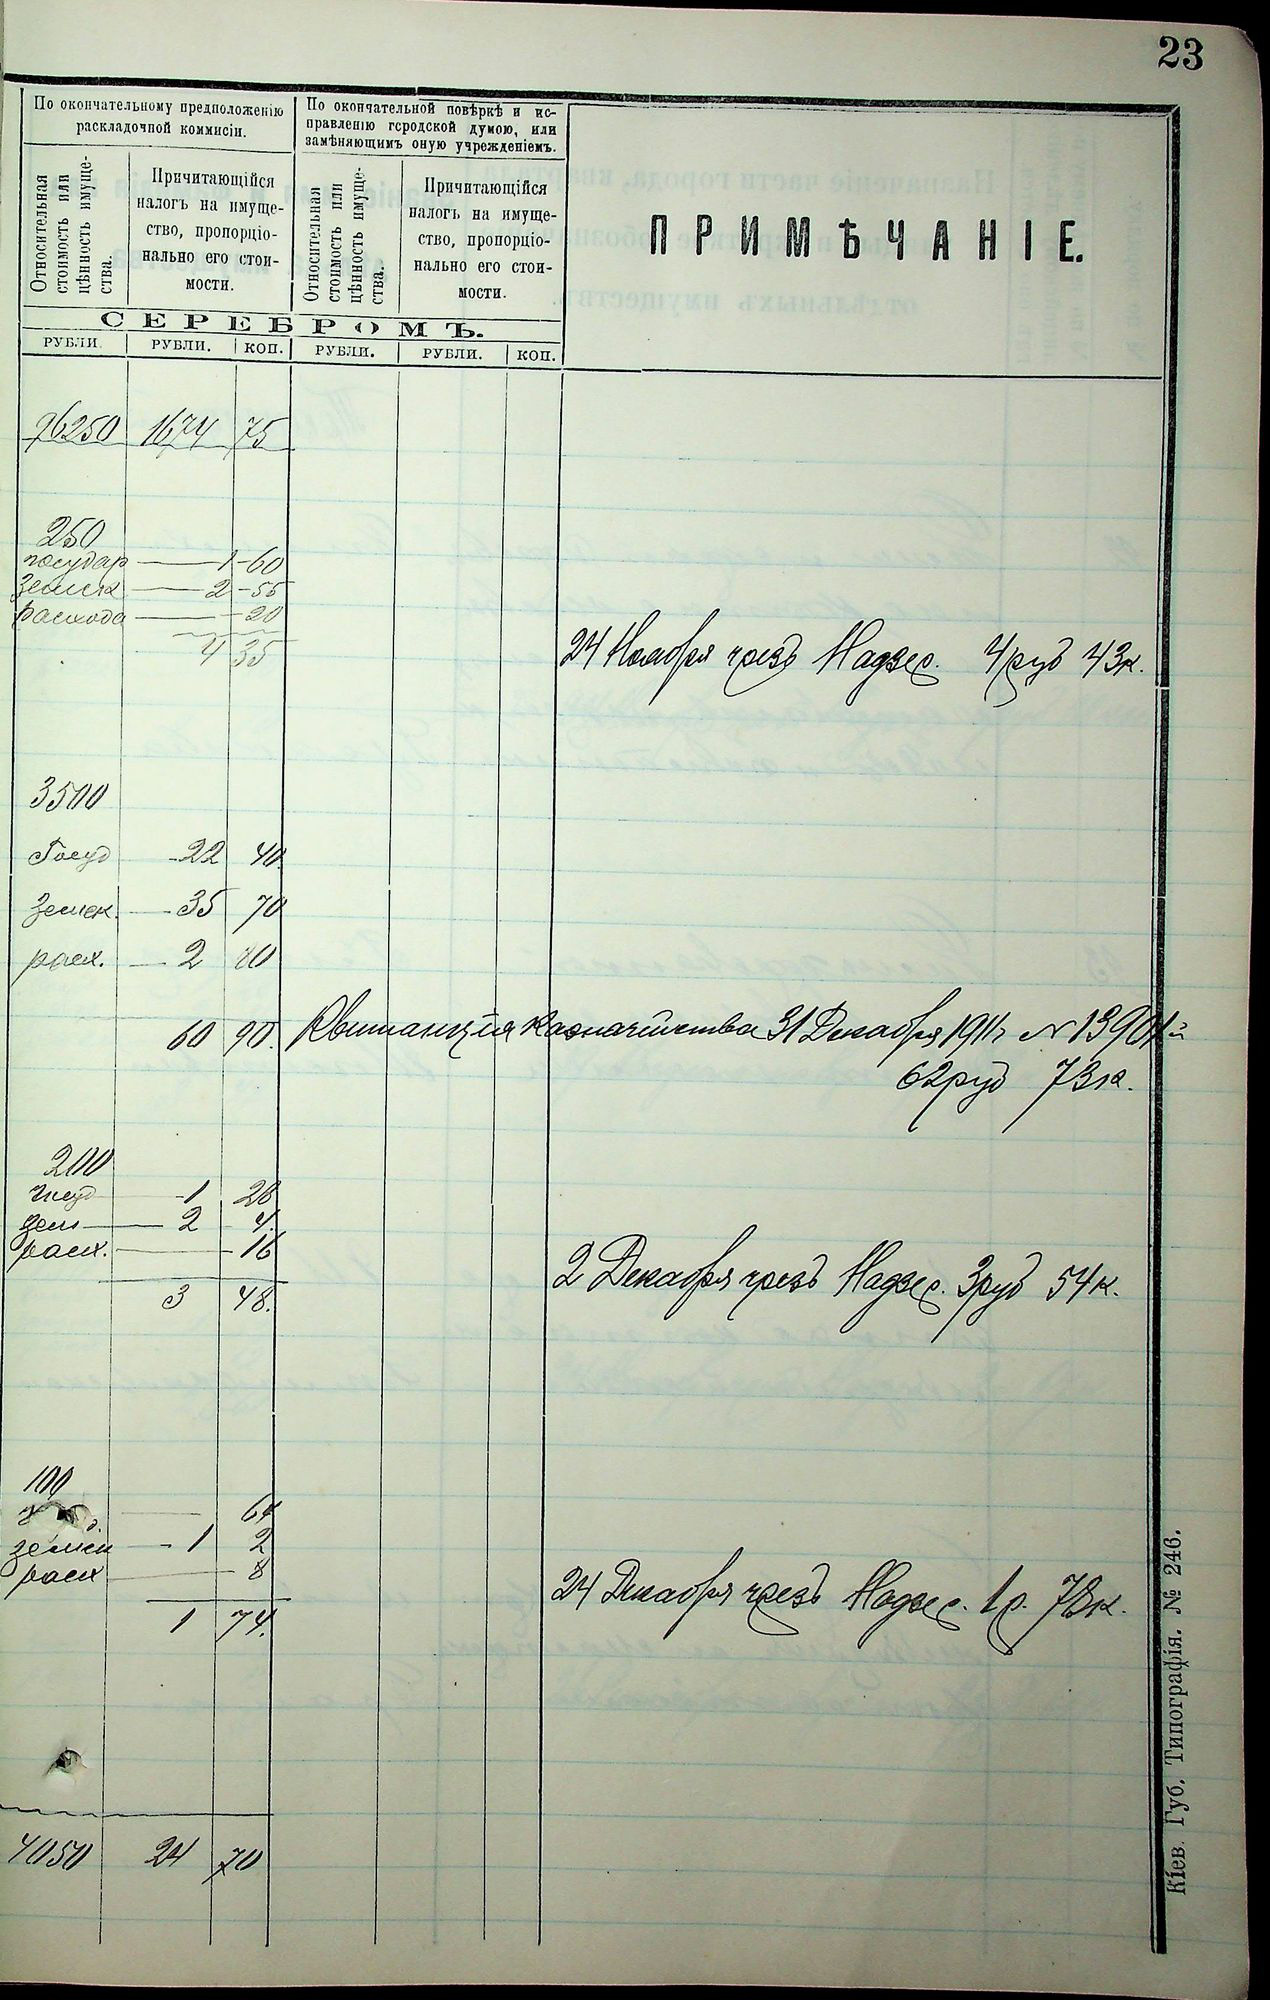 23
По окончательному предположенію
раскладочной коммисіи.
По окончательной повѣркѣ и ис-
правленію городской думою, или
замѣняющимъ оную учрежденіемъ.
Относительная
стоимость или
цѣнность имуще-
ства.
Причитающійся
налогъ на имуще-
ство, пропорціо-
нально его стои-
мости.
Относительная
стоимость или
цѣнность имуще-
ства.
Причитающійся
налогъ на имуще-
ство, пропорціо-
нально его стои-
мости.
ПРИМѢЧАНІЕ.
СЕРЕБРОМЪ.
РУБЛИ. РУБЛИ. КОП. РУБЛИ. РУБЛИ. КОП.
96250 1674 75
250
государ — 1-60
земск — 2-55
расхода — -20
4 35
24 Ноября чрезъ Надзер. 4 руб 43 к.
3500
Госуд - 22 40.
Земск. - 35 70
расх. — 2 80
60 90. Квитанція Казначейства 31 Декабря 1911 г № 13901й
62 руб 73 к.
200
госуд - 1 28
зем — 2 4.
расх. — 16
3 48.
2 Декабря чрезъ Надзер. 3 руб 54 к.
100
— 64
земск - 1 2
расх — 8
1 74.
24 Декабря чрезъ Надзер. 1 р. 78 к.
4050 24 70
Кіев. Губ. Типографія. № 246.